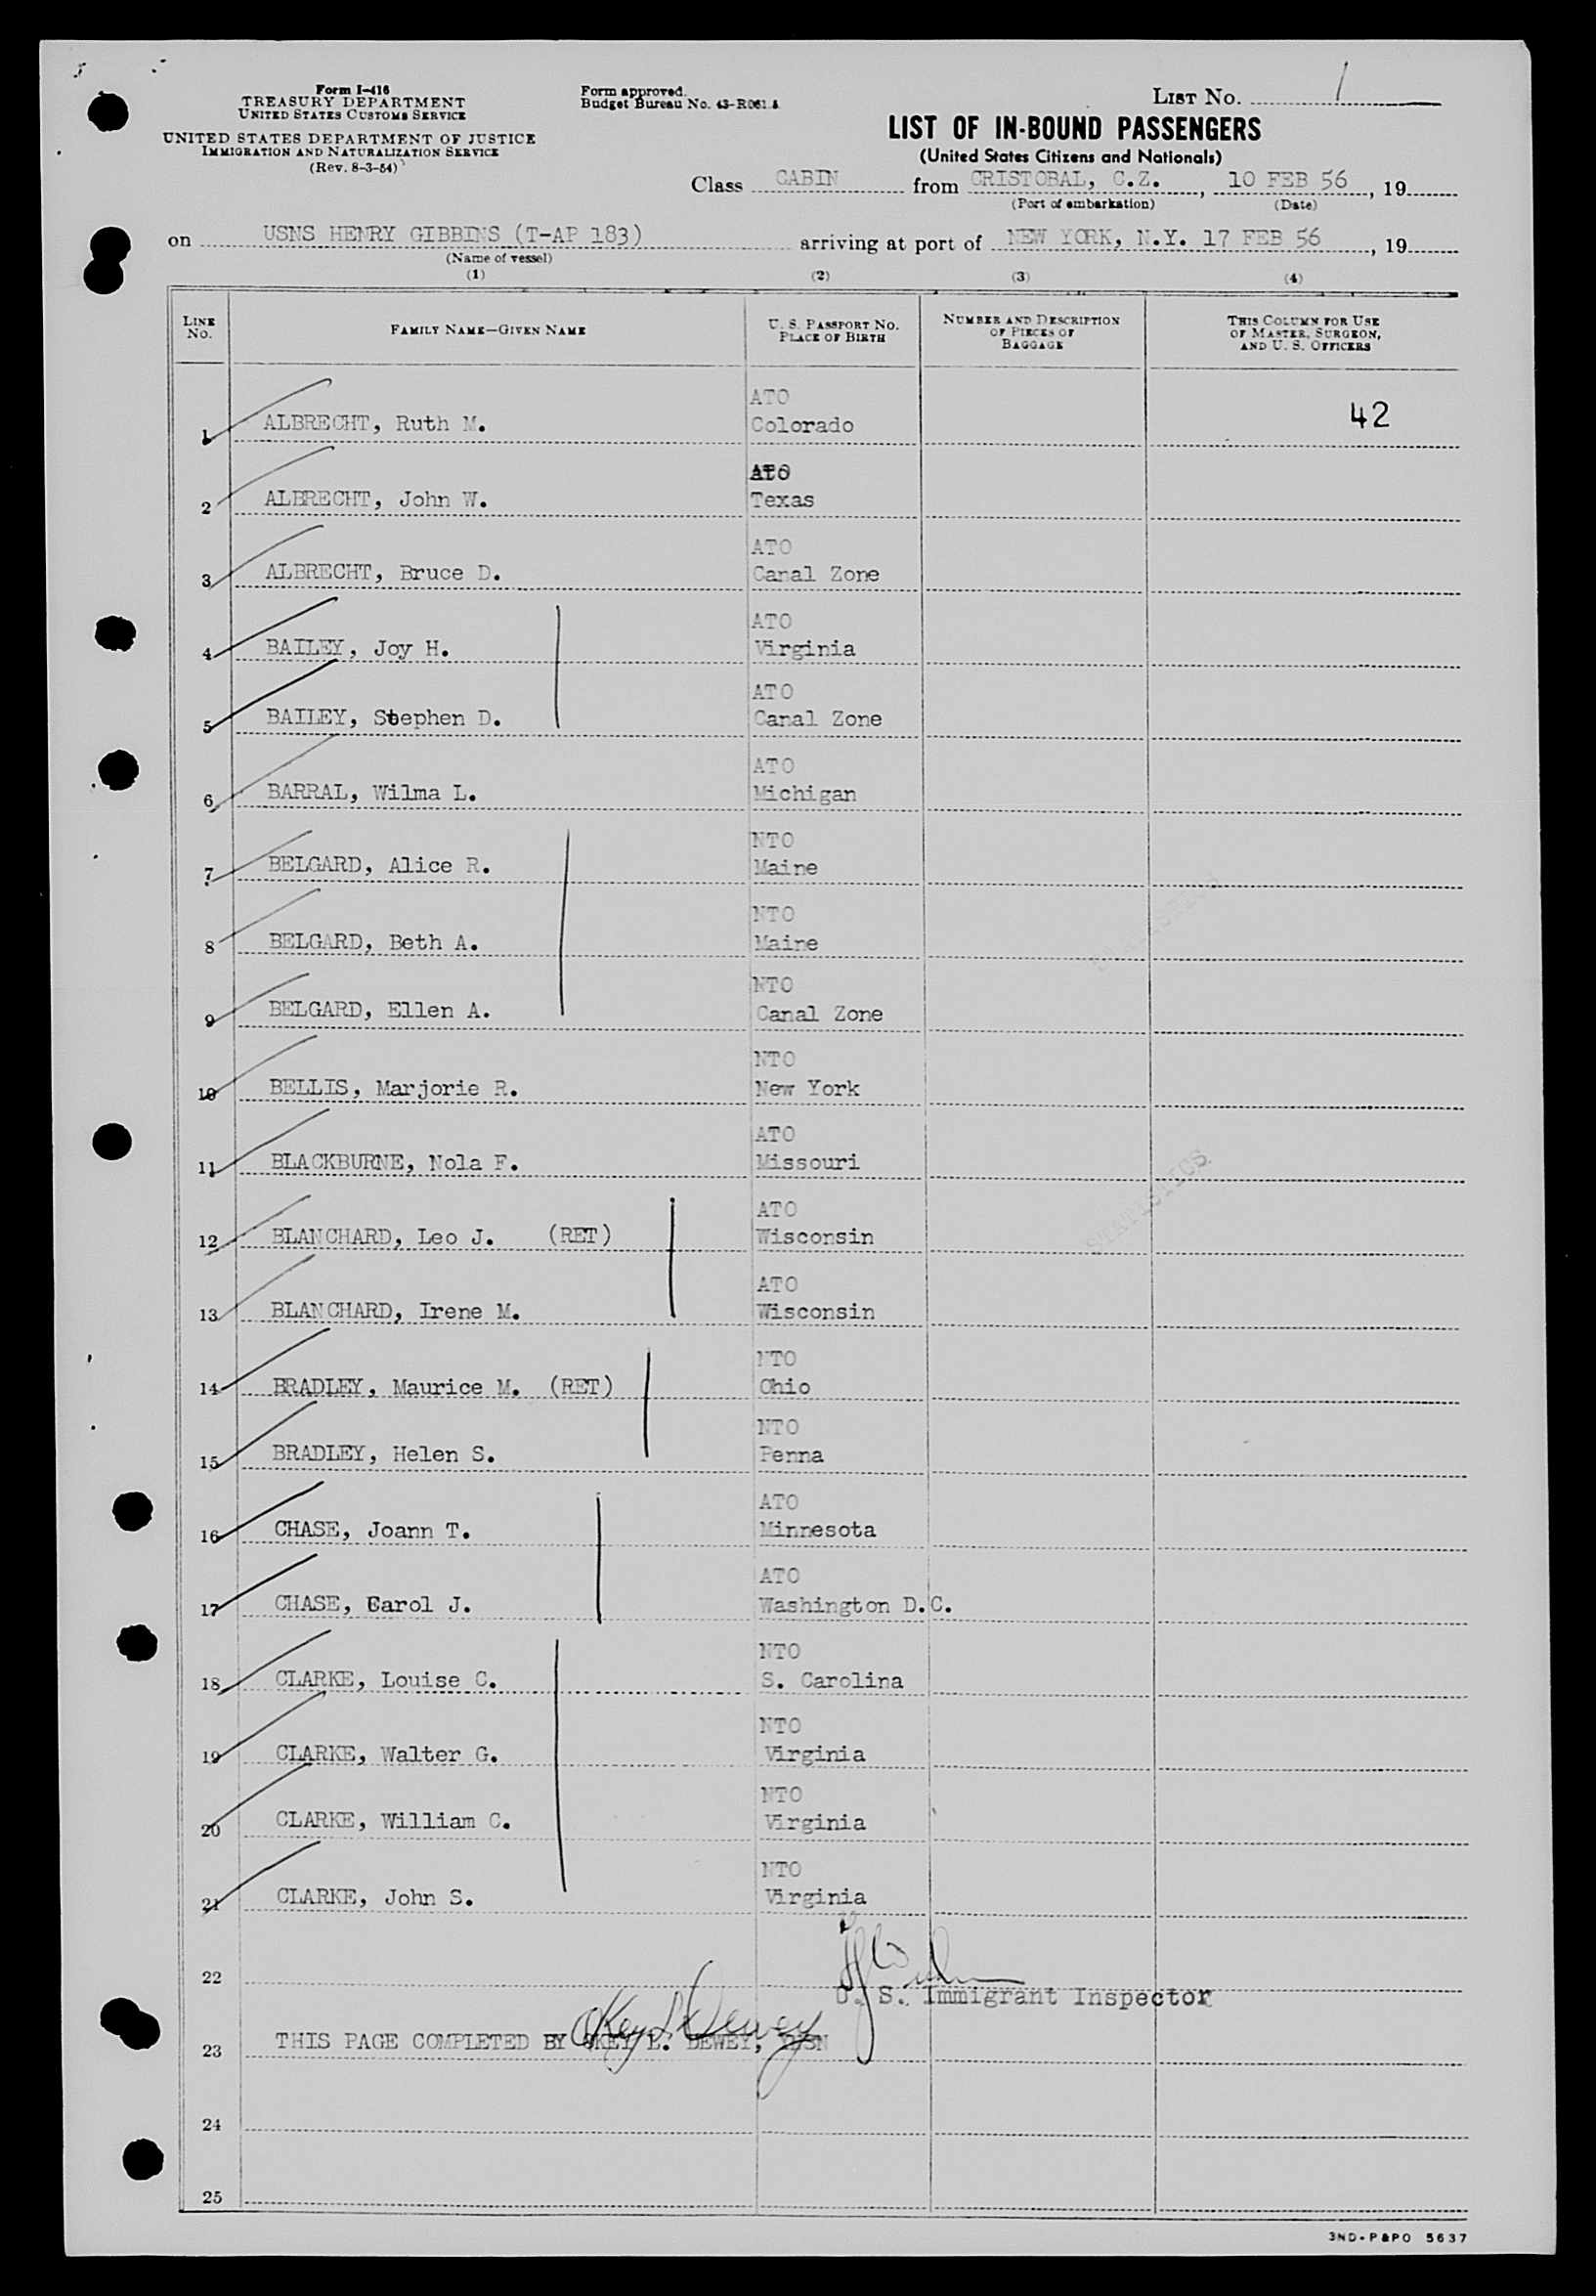 Form I-416
TREASURY DEPARTMENT
UNITED STATES CUSTOMS SERVICE
UNITED STATES DEPARTMENT OF JUSTICE
IMMIGRATION AND NATURALIZATION SERVICE
(Rev. 8-3-54)
Form approved.
Budget Bureau No. 43-R061.4
LIST NO. 1
LIST OF IN-BOUND PASSENGERS
(United States Citizens and Nationals)
Class CABIN from CRISTOBAL, C.Z., 10 FEB 56, 19
(Port of embarkation) (Date)
on USNS HENRY GIBBINS (T-AP 183) arriving at port of NEW YORK, N.Y. 17 FEB 56, 19
(Name of vessel)
(1) (2) (3) (4)
LINE NO. FAMILY NAME—GIVEN NAME U. S. PASSPORT NO. PLACE OF BIRTH NUMBER AND DESCRIPTION OF PIECES OF BAGGAGE THIS COLUMN FOR USE OF MASTER, SURGEON, AND U. S. OFFICERS
ATO
1 ALBRECHT, Ruth M. Colorado 42
ATO
2 ALBRECHT, John W. Texas
ATO
3 ALBRECHT, Bruce D. Canal Zone
ATO
4 BAILEY, Joy H. Virginia
ATO
5 BAILEY, Stephen D. Canal Zone
ATO
6 BARRAL, Wilma L. Michigan
NTO
7 BELGARD, Alice R. Maine
NTO
8 BELGARD, Beth A. Maine
NTO
9 BELGARD, Ellen A. Canal Zone
NTO
10 BELLIS, Marjorie R. New York
ATO
11 BLACKBURNE, Nola F. Missouri
ATO
12 BLANCHARD, Leo J. (RET) Wisconsin
ATO
13 BLANCHARD, Irene M. Wisconsin
NTO
14 BRADLEY, Maurice M. (RET) Ohio
NTO
15 BRADLEY, Helen S. Penna
ATO
16 CHASE, Joann T. Minnesota
ATO
17 CHASE, Carol J. Washington D.C.
NTO
18 CLARKE, Louise C. S. Carolina
NTO
19 CLARKE, Walter G. Virginia
NTO
20 CLARKE, William C. Virginia
NTO
21 CLARKE, John S. Virginia
22
U. S. Immigrant Inspector
Okey L Dewey
23 THIS PAGE COMPLETED BY OKEY L. DEWEY,
24
25
STATISTICS
3ND-P&PO 5637